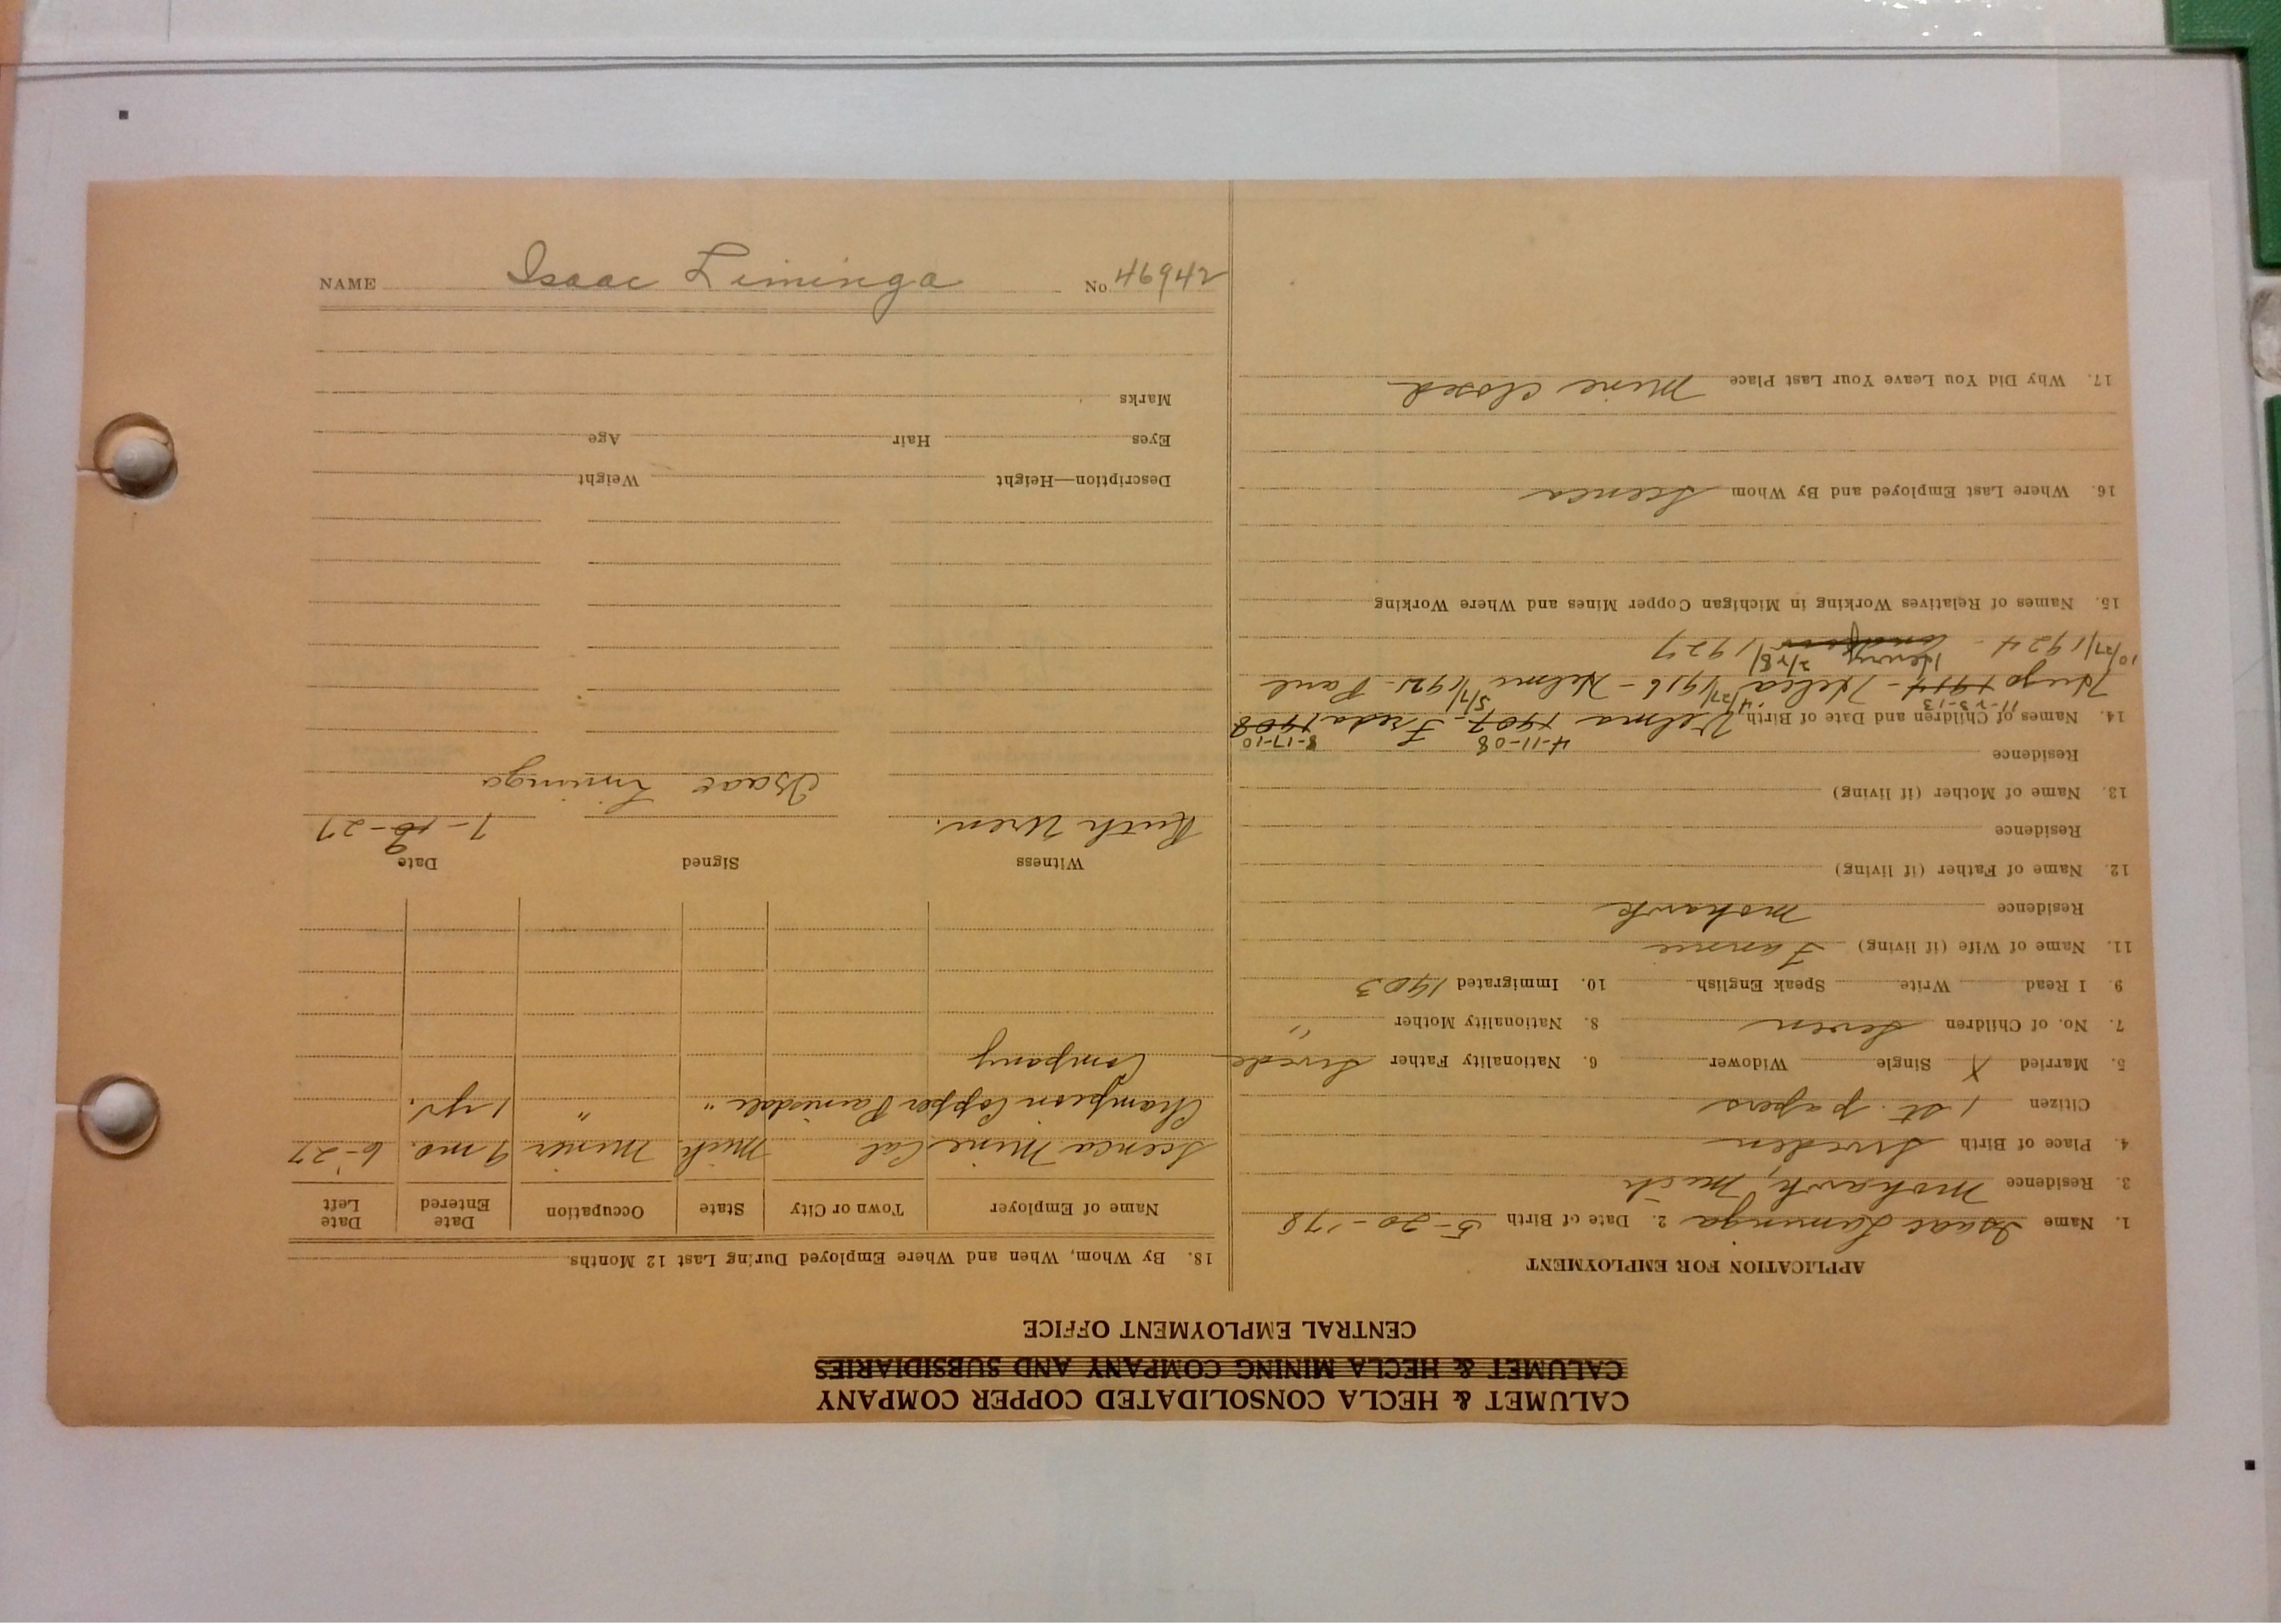 CALUMET & HECLA CONSOLIDATED COPPER COMPANY
CALUMET & HECLA MINING COMPANY AND SUBSIDIARIES
CENTRAL EMPLOYMENT OFFICE
APPLICATION FOR EMPLOYMENT
1. Name Isaac Liminga 2. Date of Birth 5-20-'78
3. Residence Mohawk, Mich
4. Place of Birth Sweden
Citizen 1 st. papers
5. Married X Single Widower 6. Nationality Father Swede
7. No. of Children Seven 8. Nationality Mother "
9. I Read Write Speak English 10. Immigrated 1903
11. Name of Wife (if living) Fannie
Residence Mohawk
12. Name of Father (if living)
Residence
13. Name of Mother (if living)
Residence
4-11-08 8-17-10
14. Names of Children and Date of Birth Velma 1907- Freda 1908
11-23-13 4/27/ 5/7/
Hugo 1914 - Helia 1916 - Helmi 1921 - Paul
Henry 2/28/
10/27/1924 - 1927
15. Names of Relatives Working in Michigan Copper Mines and Where Working
16. Where Last Employed and By Whom Seneca
17. Why Did You Leave Your Last Place Mine closed
18. By Whom, When and Where Employed During Last 12 Months
Name of Employer Town or City State Occupation Date Entered Date Left
Seneca Mine Cal Mich Miner 9 mo. 6-27
Champion Copper Painesdale " " 1 yr.
Company
Witness Signed Date
Ruth Uren. 7-9-27
Isaac Liminga
Description—Height Weight
Eyes Hair Age
Marks
NAME Isaac Liminga No 46942